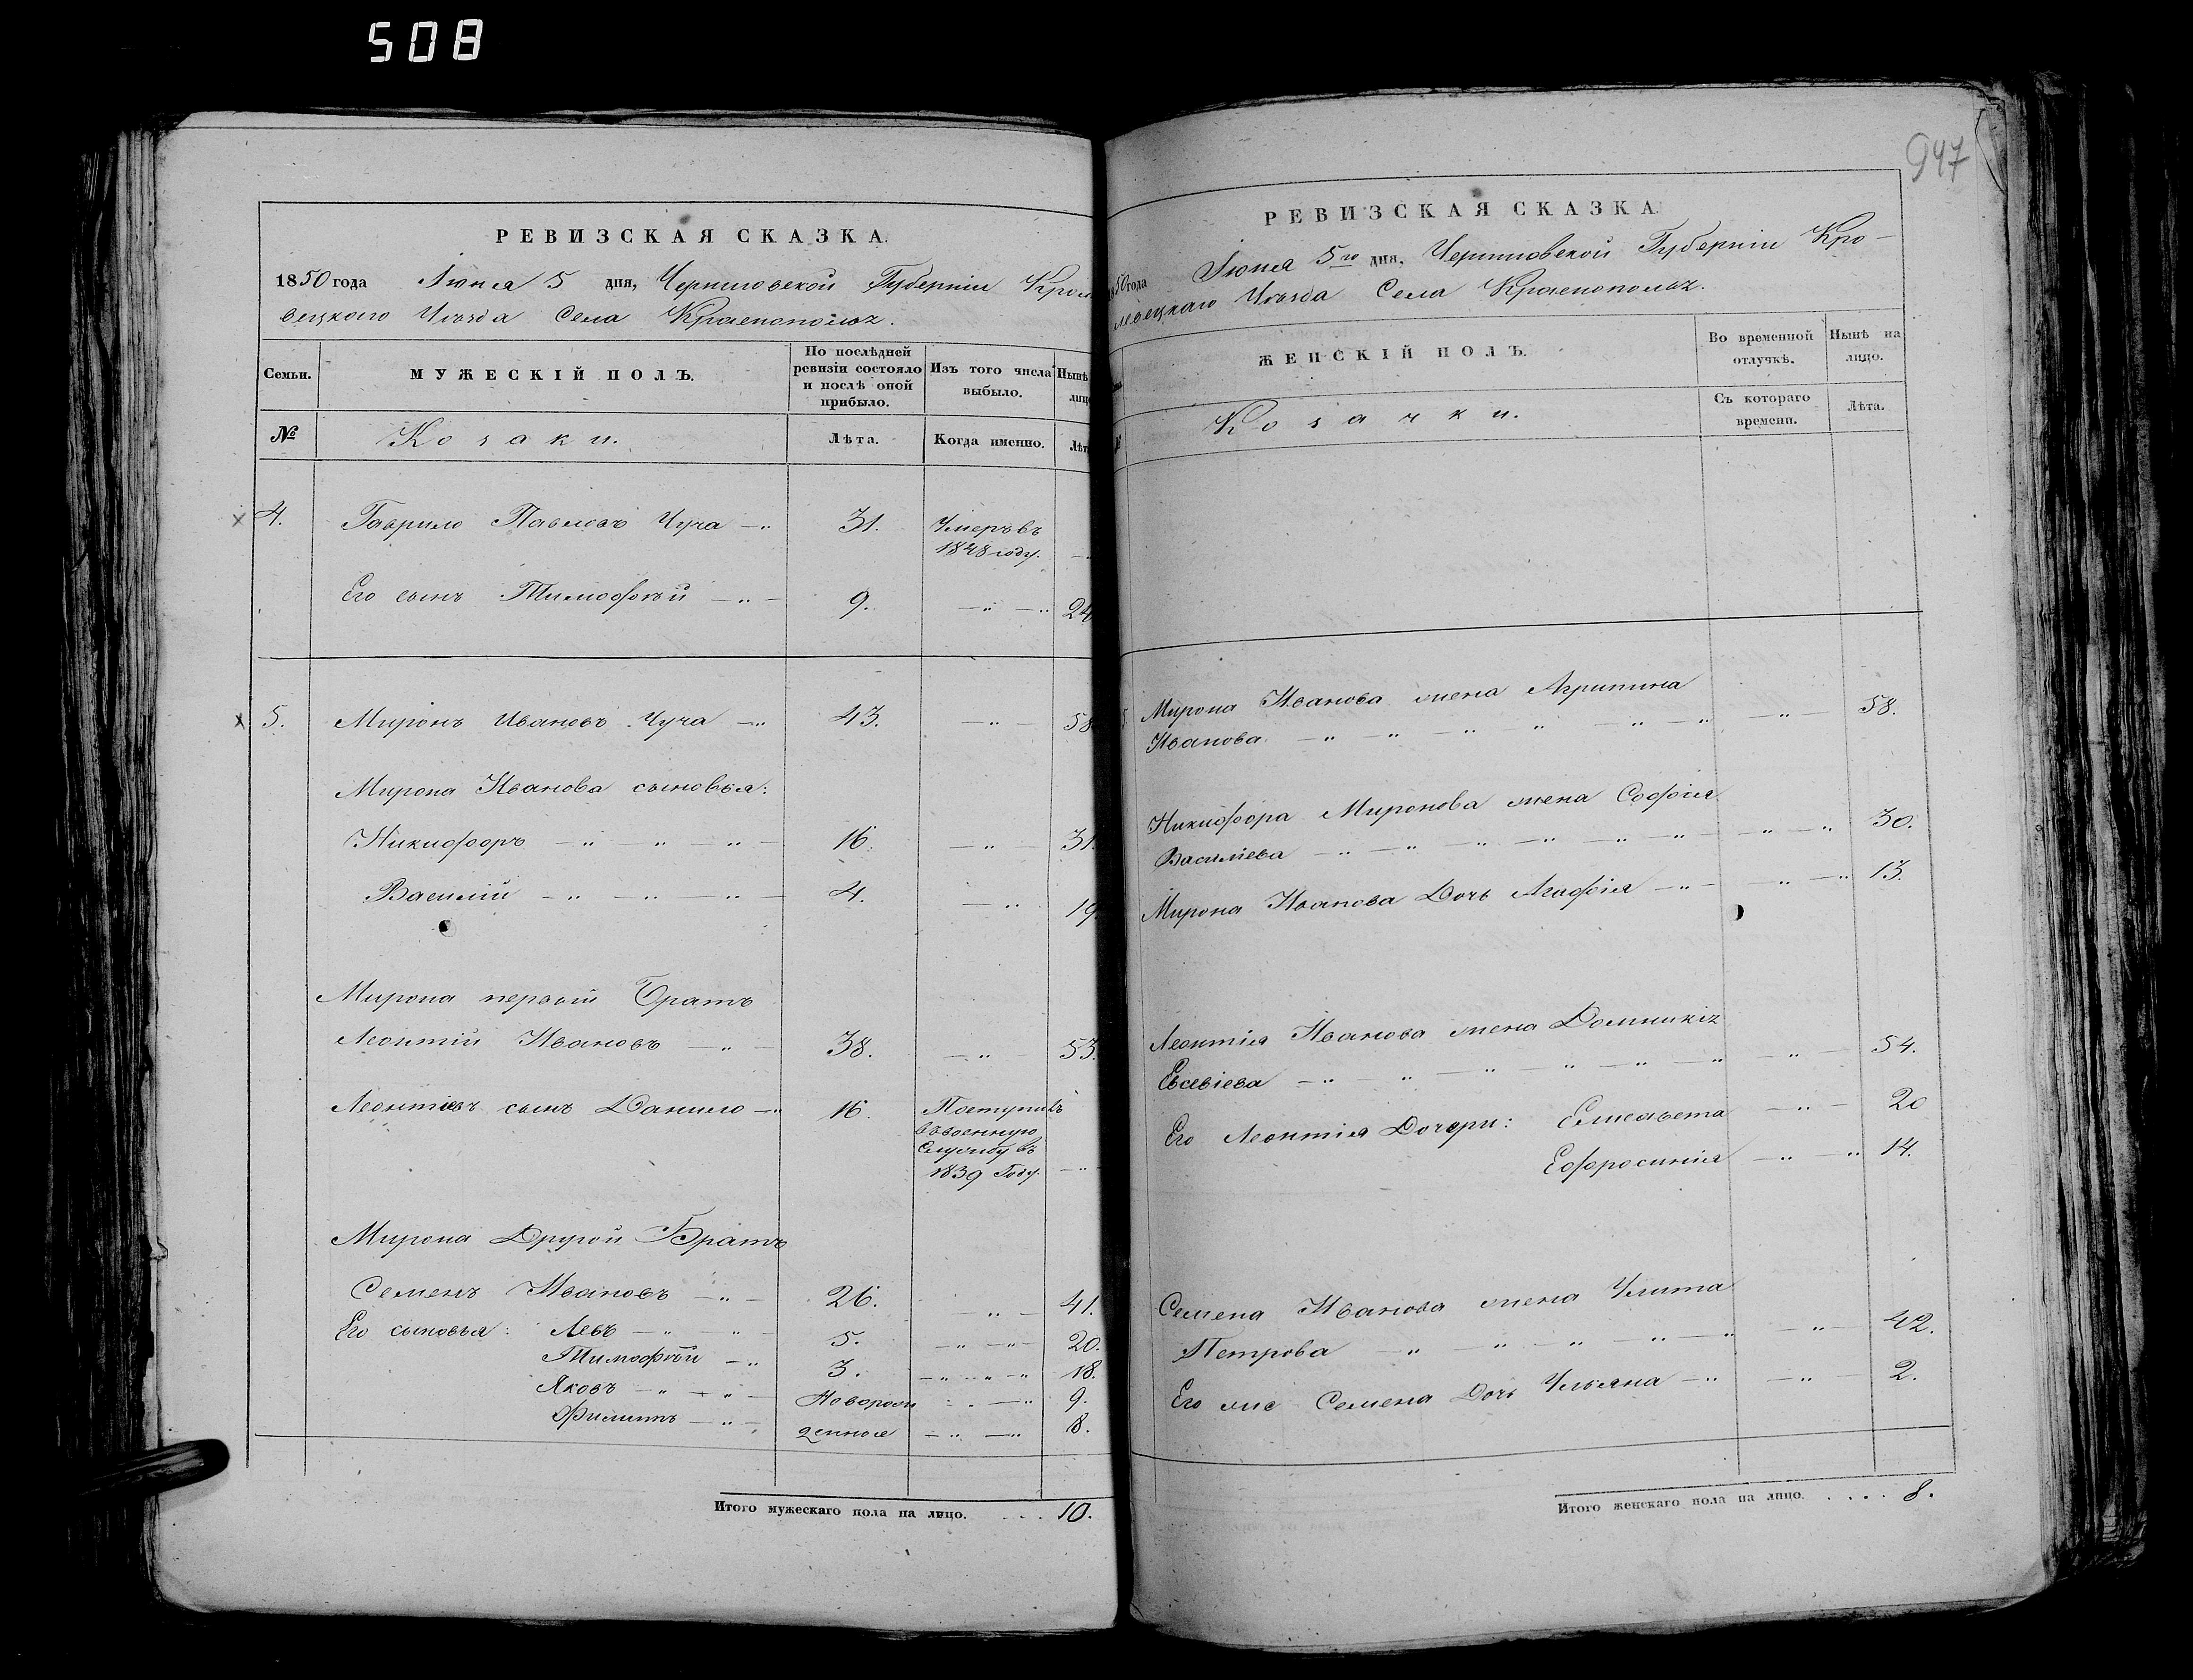 508
947
РЕВИЗСКАЯ СКАЗКА.
1850 года Іюня 5 дня, Черниговской Губерніи Крол
вецкого Уѣзда Села Краснополѣ.
Семьи. МУЖЕСКІЙ ПОЛЪ. По послѣдней ревизіи состояло и послѣ оной прибыло. Изъ того числа выбыло. Нынѣ лицо
№ Козаки. Лѣта. Когда именно. Лѣт
4. Гаврило Павловъ Чуча — 31. Умеръ въ
1848 году.
Его сынъ Тимофѣй — 9. — 24
5. Миронъ Ивановъ Чуча — 43. — 58
Мирона Иванова сыновья:
Никифоръ — 16. — 31.
Василій — 4. — 19
Мирона первый Братъ
Леонтій Ивановъ — 38. — 53.
Леонтіевъ сынъ Данило — 16. Поступилъ
въ военную
службу въ
1839 Году.
Мирона Другой Братъ
Семенъ Ивановъ — 26. — 41.
Его сыновья: Левъ — 5. — 20.
Тимофѣй — 3. — 18.
Яковъ — Новорож — 9.
Филипъ — денные — 8.
Итого мужескаго пола на лицо. . . . 10.
РЕВИЗСКАЯ СКАЗКА.
50 года Іюня 5го дня, Черниговской Губерніи Кро-
левецкаго Уѣзда Села Краснополѣ.
ЖЕНСКІЙ ПОЛЪ. Во временной отлучкѣ. Нынѣ на лицо.
Козачки. Съ котораго времени. Лѣта.
Мирона Иванова жена Агрипина
Иванова — 58.
Никифора Миронова жена Софія
Василіева — 30.
Мирона Иванова Дочь Агафія — 13.
Леонтія Иванова жена Домникіѣ
Евсевіева — 54.
Его Леонтія Дочери: Елисавета — 20
Ефросинія — 14.
Семена Иванова жена Улита
Петрова — 42.
Его же Семена Дочь Ульяна — 2.
Итого женскаго пола на лицо. . . . . 8.